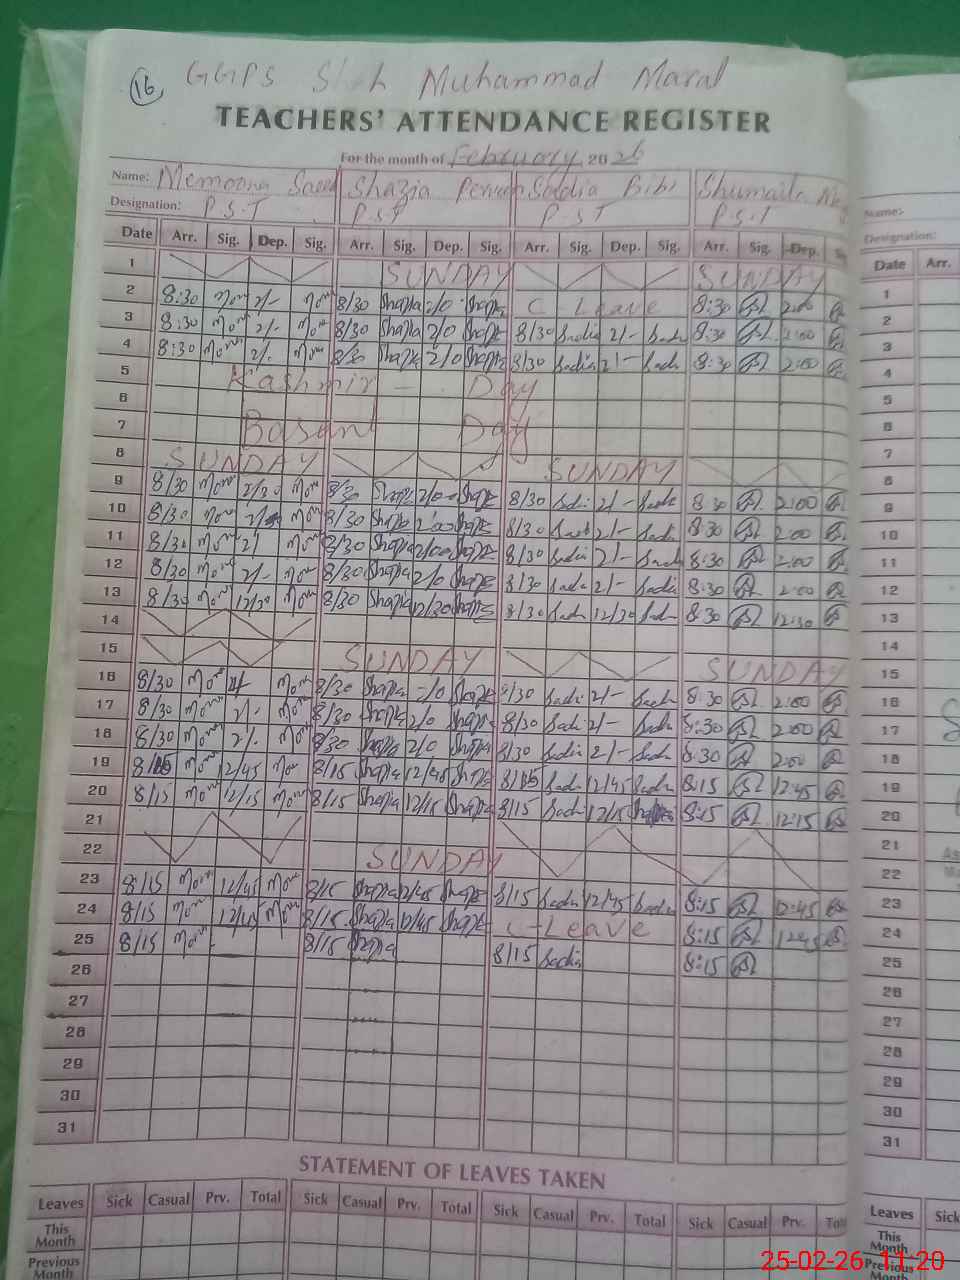 16 GGPS Muhammad Maral
TEACHERS' ATTENDANCE REGISTER
For the month of February 2026
Name: Memoona Saeed Shazia Perveen Sadia Bibi Shumaila
Designation: P.S.T P.S.T P.S.T P.S.T
Date Arr. Sig. Dep. Sig. Arr. Sig. Dep. Sig. Arr. Sig. Dep. Sig. Arr. Sig. Dep.
1 SUNDAY SUNDAY
2 8:30 2/- 8/30 Shazia 2/0 Shazia C Leave 8:30 2:00
3 8:30 2/- 8/30 Shazia 2/0 Shazia 8/30 Sadia 2/- Sadia 8:30 2:00
4 8:30 2/- 8/30 Shazia 2/0 Shazia 8/30 Sadia 2/- Sadia 8:30 2:00
5 Kashmir Day
6
7 Basant Day
8 SUNDAY SUNDAY
9 8/30 8/30 Shazia 2/00 Shazia 8/30 Sadia 2/- Sadia 8:30 2:00
10 8/30 8/30 Shazia 2:00 Shazia 8/30 Sadia 2/- Sadia 8:30 2:00
11 8/30 8/30 Shazia 2/00 Shazia 8/30 Sadia 2/- Sadia 8:30 2:00
12 8/30 2/- 8/30 Shazia 2/0 Shazia 8/30 Sadia 2/- Sadia 8:30 2:00
13 8/30 12/30 8/30 Shazia 12/30 Shazia 8/30 Sadia 12/30 Sadia 8:30 12:30
14
15 SUNDAY SUNDAY
16 8/30 8/30 Shazia 2/0 Shazia 8/30 Sadia 2/- Sadia 8:30 2:00
17 8/30 2/- 8/30 Shazia 2/0 Shazia 8/30 Sadia 2/- Sadia 8:30 2:00
18 8/30 2/- 8/30 Shazia 2/0 Shazia 8/30 Sadia 2/- Sadia 8:30 2:00
19 8/15 12/45 8/15 Shazia 12/45 Shazia 8/15 Sadia 12/45 Sadia 8:15 12:45
20 8/15 12/15 8/15 Shazia 12/15 Shazia 8/15 Sadia 12/15 8:15 12:15
21
22 SUNDAY
23 8/15 12/45 8/15 Shazia 12/45 Shazia 8/15 Sadia 12/45 Sadia 8:15 12:45
24 8/15 12/45 8/15 Shazia 12/45 Shazia C-Leave 8:15 12:45
25 8/15 8/15 Shazia 8/15 Sadia 8:15
26
27
28
29
30
31
STATEMENT OF LEAVES TAKEN
Leaves Sick Casual Prv. Total Sick Casual Prv. Total Sick Casual Prv. Total Sick Casual Prv.
This Month
Previous Month
Name:-
Designation:
Date Arr.
1
2
3
4
5
6
7
8
9
10
11
12
13
14
15
16
17
18
19
20
21
22
23
24
25
26
27
28
29
30
31
Leaves Sick
This Month
Previous Month
25-02-26 11:20